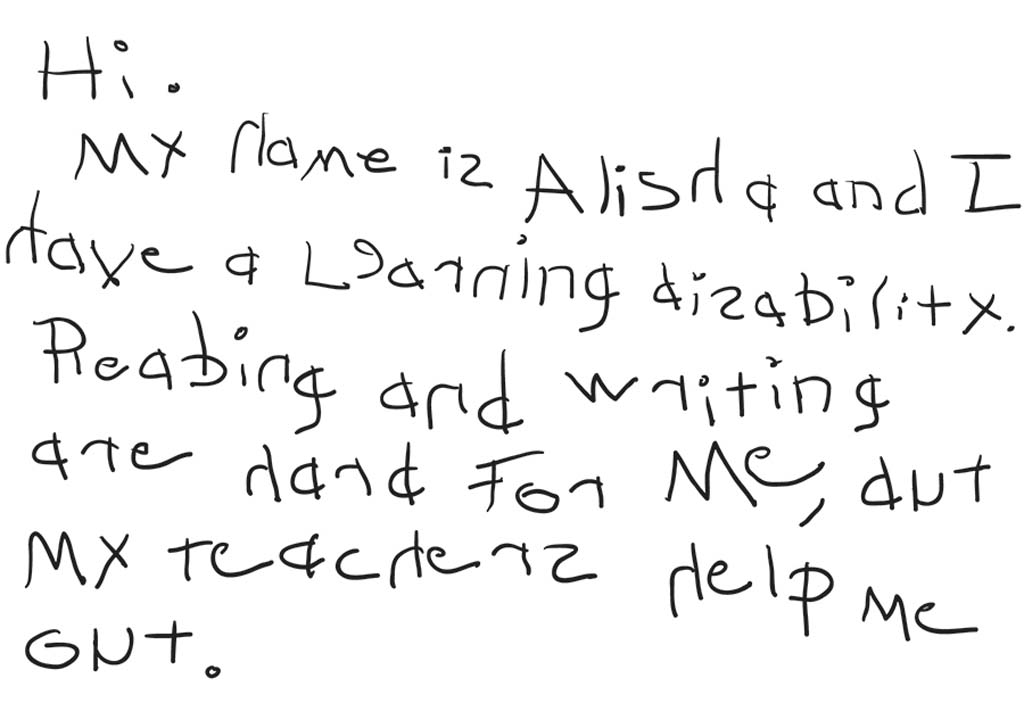 Hi.
MY Name iz Alisha and I
have a Learning dizability.
Reabing and writing
are hard For Me, dut
MY teacherz help Me
out.